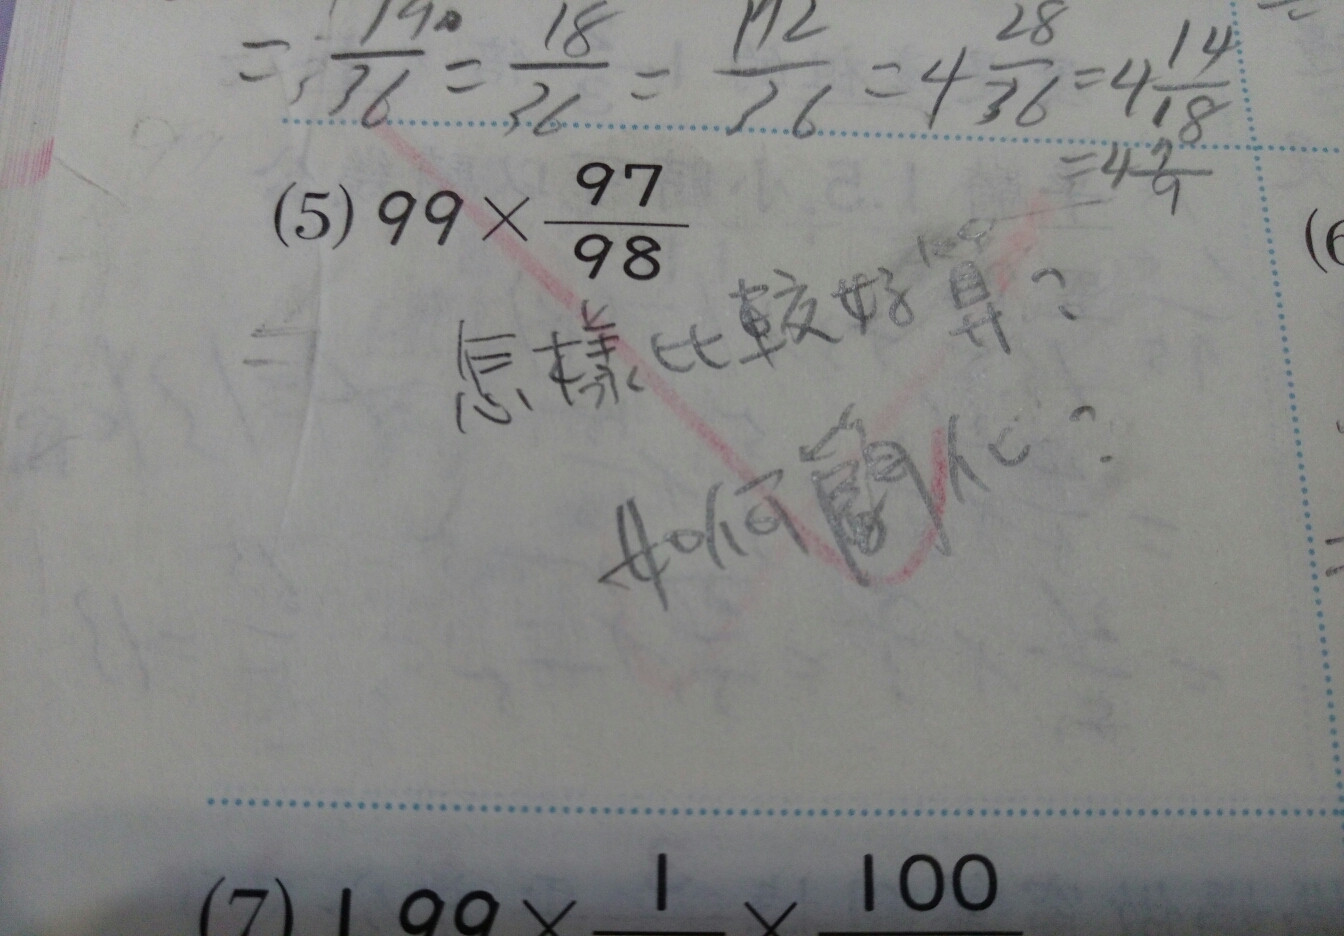 = 36 = 18/36 = 112/36 = 4 28/36 = 4 14/18
= 4 7/9
(5) 99 × 97/98
(6
=
怎樣比較好算?
如何簡化?
(7) 199 × 1 × 100